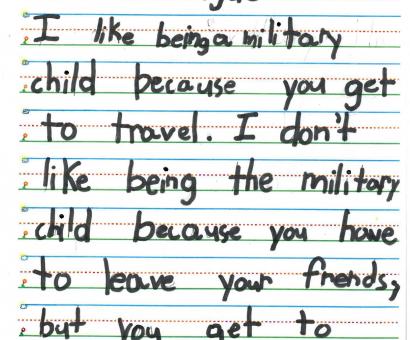 I like being a military
child because you get
to travel. I don't
like being the military
child because you have
to leave your frends,
but you get to